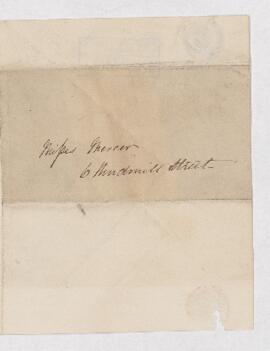 Misses Mercer
6 Windmill Street